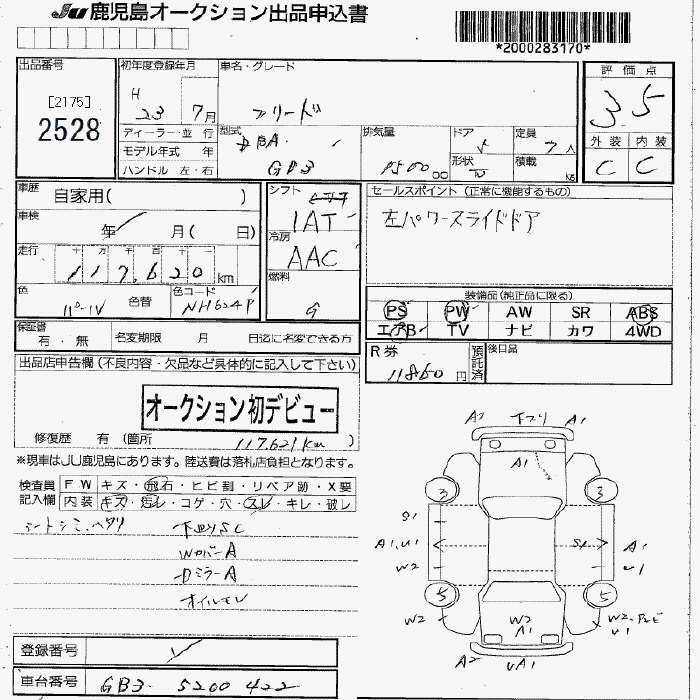 JU 鹿児島オークション出品申込書
*2000283170*
出品番号
[2175]
2528
初年度登録年月
H 23 7月
ディーラー・並 行
モデル年式 年
ハンドル 左・右
車名・グレード
フリード
型式
DBA-
GB3
排気量
1500 cc
ドア
5
形状
定員
7人
積載
KG
評価点
3.5
外装 内装
C C
車歴
自家用( )
車検
年 月( 日)
走行
十 万 千 百 十
117,620 km
色
パール
色替
色コード
NH624P
シフト
IAT
冷房
AAC
燃料
G
セールスポイント (正常に機能するもの)
左パワースライドドア
装備品(純正品に限る)
PS PW AW SR ABS
エアB TV ナビ カワ 4WD
保証書
有・無
名変期限 月 日迄に名変できる方
R券
11860 円
預託済
後日品
出品店申告欄(不良内容・欠品など具体的に記入して下さい)
オークション初デビュー
修復歴 有 (箇所 117,621km )
※現車はJU鹿児島にあります。陸送費は落札店負担となります。
検査員記入欄
FW キズ・飛石・ヒビ割・リペア跡・X要
内装 キズ・汚レ・コゲ・穴・スレ・キレ・破レ
シートシミ、ヘタリ
下廻りSC
WカバーA
ドアミラーA
オイルモレ
A2 下ブリ A1
A1
3 3
S1
A1,U1
W2
S1
A1
U1
5 5
W2
W2
A1
U1
A2 UA1
登録番号
車台番号
GB3- 5200422